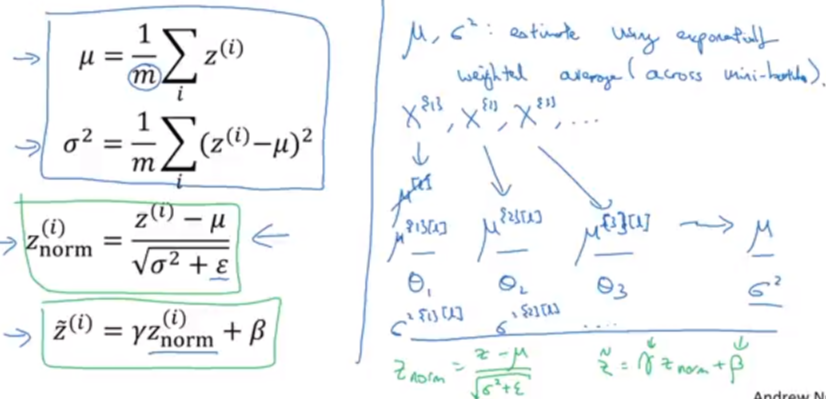 μ = 1/m ∑_i z^(i)
σ² = 1/m ∑_i (z^(i) − μ)²
z_norm^(i) = (z^(i) − μ) / √(σ² + ε)
z̃^(i) = γz_norm^(i) + β
μ, σ²: estimate using exponentially
weighted average (across mini-batches).
X^{1}, X^{2}, X^{3}, ...
μ^{1}[l] μ^{2}[l] μ^{3}[l] → μ
θ₁ θ₂ θ₃ σ²
σ²^{1}[l] σ²^{2}[l] ....
z_norm = (z − μ) / √(σ² + ε) z̃ = γ z_norm + β
Andrew